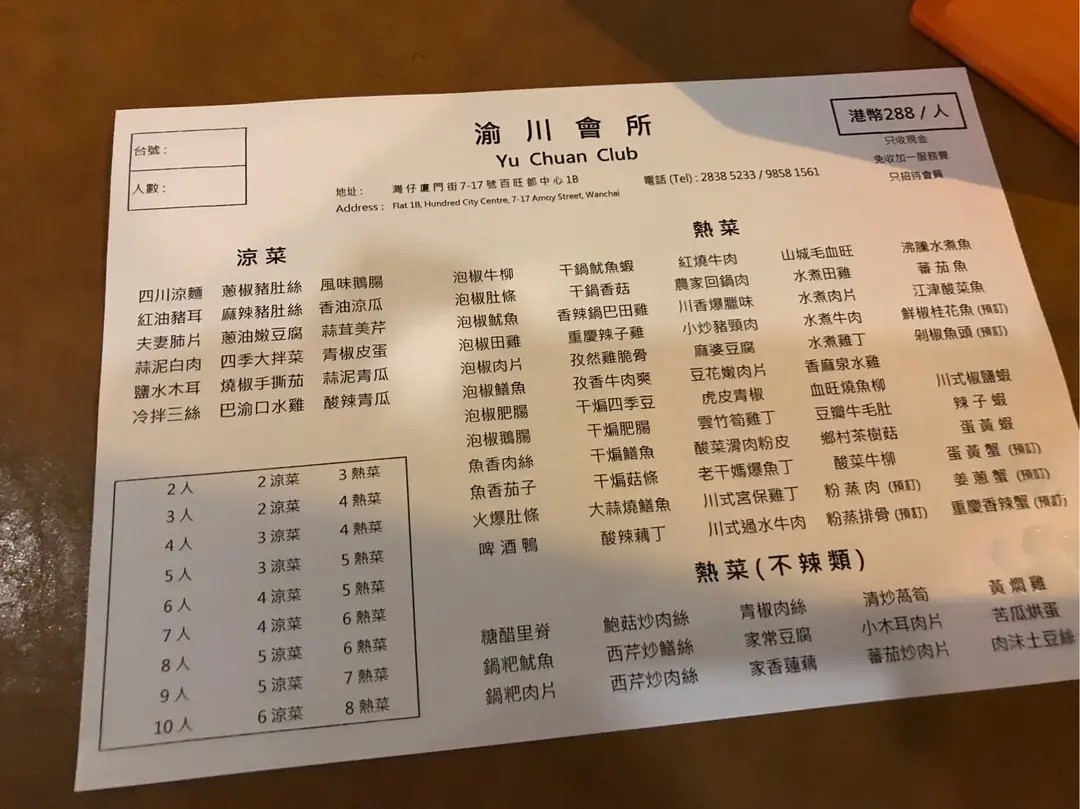 台號：
人數：
渝川會所
Yu Chuan Club
地址： 灣仔廈門街7-17號百旺都中心1B
電話 (Tel) : 2838 5233 / 9858 1561
Address : Flat 1B, Hundred City Centre, 7-17 Amoy Street, Wanchai
港幣288 / 人
只收現金
免收加一服務費
只招待會員
涼菜
四川涼麵 蔥椒豬肚絲 風味鵝腸
紅油豬耳 麻辣豬肚絲 香油涼瓜
夫妻肺片 蔥油嫩豆腐 蒜茸美芹
蒜泥白肉 四季大拌菜 青椒皮蛋
鹽水木耳 燒椒手撕茄 蒜泥青瓜
冷拌三絲 巴渝口水雞 酸辣青瓜
2人 2涼菜 3熱菜
3人 2涼菜 4熱菜
4人 3涼菜 4熱菜
5人 3涼菜 5熱菜
6人 4涼菜 5熱菜
7人 4涼菜 6熱菜
8人 5涼菜 6熱菜
9人 5涼菜 7熱菜
10人 6涼菜 8熱菜
熱菜
泡椒牛柳 干鍋魷魚蝦 紅燒牛肉 山城毛血旺 沸騰水煮魚
泡椒肚條 干鍋香菇 農家回鍋肉 水煮田雞 蕃茄魚
泡椒魷魚 香辣鍋巴田雞 川香爆臘味 水煮肉片 江津酸菜魚
泡椒田雞 重慶辣子雞 小炒豬頸肉 水煮牛肉 鮮椒桂花魚 (預訂)
泡椒肉片 孜然雞脆骨 麻婆豆腐 水煮雞丁 剁椒魚頭 (預訂)
泡椒鱔魚 孜香牛肉爽 豆花嫩肉片 香麻泉水雞
泡椒肥腸 干煸四季豆 虎皮青椒 血旺燒魚柳 川式椒鹽蝦
泡椒鵝腸 干煸肥腸 雲竹筍雞丁 豆瓣牛毛肚 辣子蝦
魚香肉絲 干煸鱔魚 酸菜滑肉粉皮 鄉村茶樹菇 蛋黃蝦
魚香茄子 干煸菇條 老干媽爆魚丁 酸菜牛柳 蛋黃蟹 (預訂)
火爆肚條 大蒜燒鱔魚 川式宮保雞丁 粉蒸肉 (預訂) 姜蔥蟹 (預訂)
啤酒鴨 酸辣藕丁 川式過水牛肉 粉蒸排骨 (預訂) 重慶香辣蟹 (預訂)
熱菜(不辣類)
糖醋里脊 鮑菇炒肉絲 青椒肉絲 清炒萵筍 黃燜雞
鍋粑魷魚 西芹炒鱔絲 家常豆腐 小木耳肉片 苦瓜烘蛋
鍋粑肉片 西芹炒肉絲 家香蓮藕 蕃茄炒肉片 肉沫土豆絲